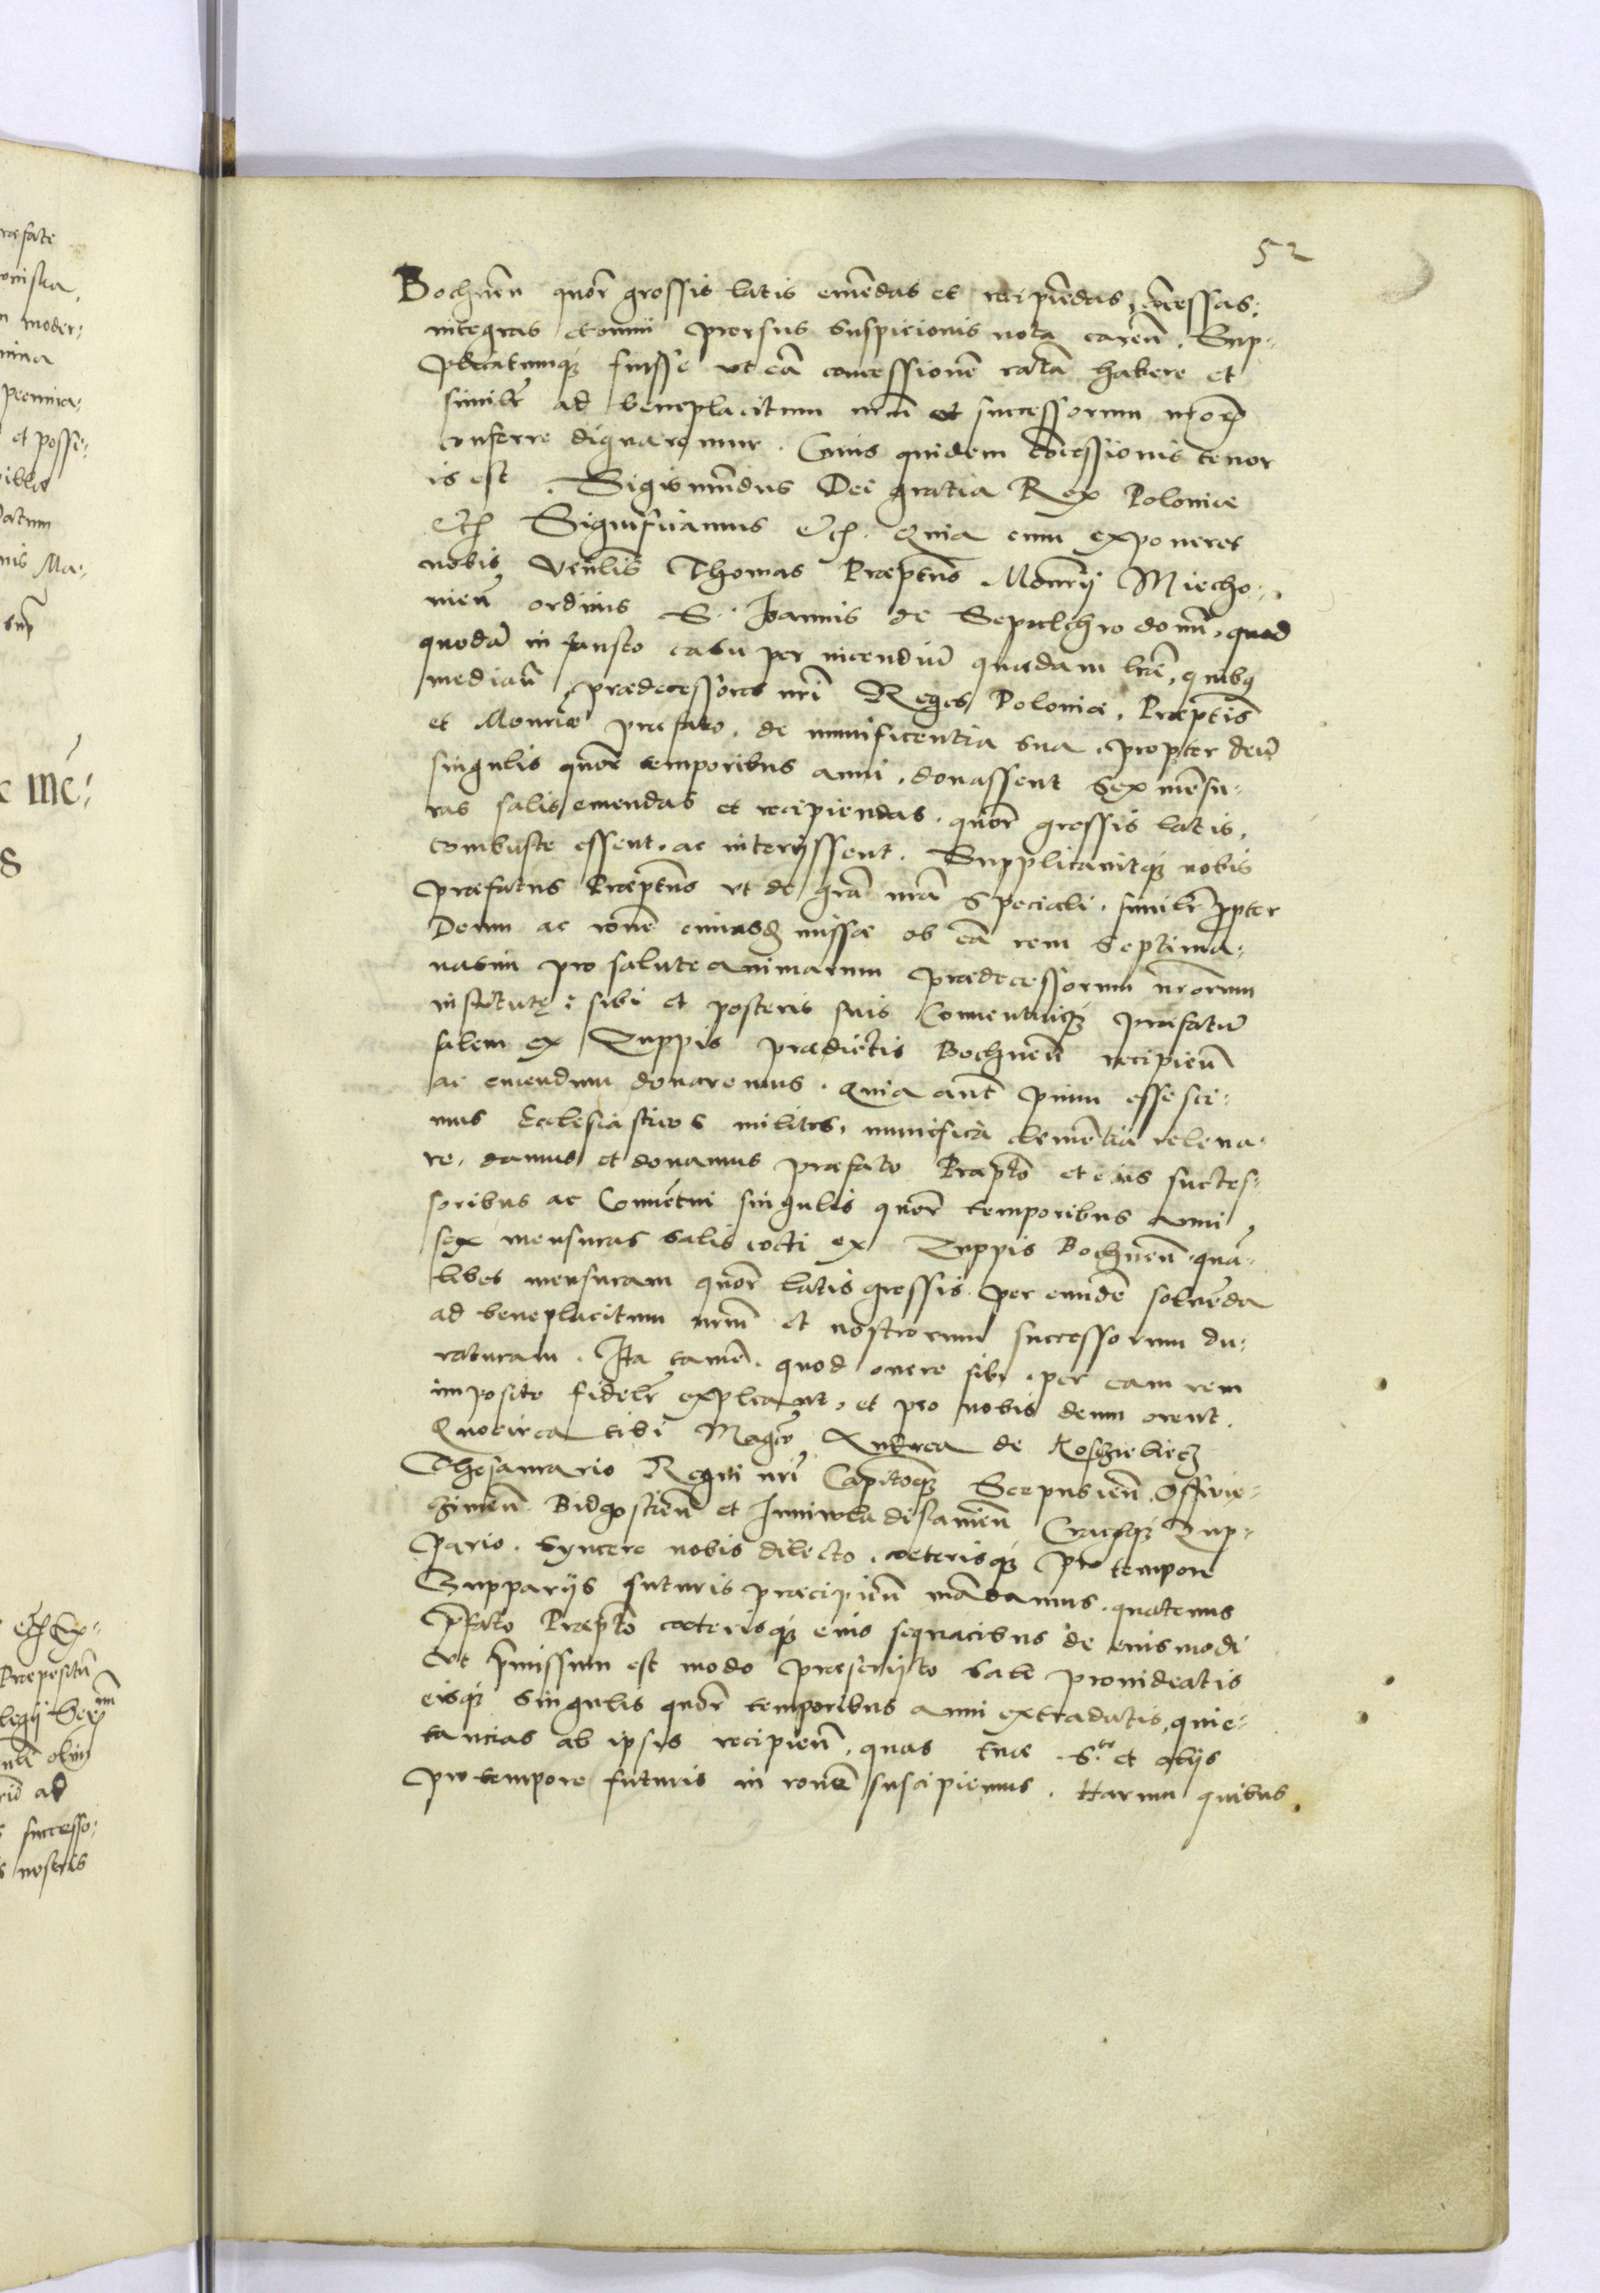 52
Bochneñ quõr grossis latis emẽdas et recipiẽdas, cõcessas:
integras et omni prorsus suspicionis nota careñ. Sup-
plicatumq́ fuisse vt eã concessionẽ ratã habere et
similr̃ ad beneplacitum nr̃m et successorum nr̃orũ
conferre dignaremur. Cuius quidem cõcessionis tenor
is est. Sigismũdus Dei gratia Rex Poloniæ
Etc̃ Significamus Etc̃. Quia cum exponeret
nobis Veñlis Thomas Præptus Moñrij Miecho-
vieñ ordinis S. Joannis de Sepulchro domĩ, quod
quodã infausto casu per incendiũ quædam lrẽ, quibq
mediañ prædecessores nr̃i Reges Poloniæ, Præptis
et Moñriæ præfato, de munificentia sua, propter deũ
singulis quõr temporibus anni, donassent sex mẽsu-
ras salis emendas et recipiendas, quõr grossis latis,
combuste essent, ac interijssent. Supplicavitq́ nobis
præfatus Præptus vt de grã nrã speciali, similr̃ ppter
Deum ac rõne cuiusd̃ missæ ob eã rem septima-
natim pro salute animarum prædecessorum nr̃orum
institutę: sibi et posteris suis Conventuiq́ præfatũ
salem ex Zuppis prædictis Bochneñ recipieñ
ac emendum donaremus. Quia aũt pium esse sci-
mus Ecclesiasticos milites, munificà clemẽtia releva-
re, damus et donamus præfato Præpto et eius succes-
soribus ac Convẽtui singulis quõr temporibus anni
sex mensuras salis cocti ex Zuppis Bochneñ quã-
libet mensuram quõr latis grossis per eundẽ solvẽda
ad beneplacitum nr̃m et nostrorum successorum du-
raturam. Ita tamẽ, quod onere sibi, per eam rem
imposito fidelr̃ expleant, et pro nobis deum orent.
Quocirca tibi Magco Andrea de Koschieliecz
Thesaurario Regni nr̃i Capitoq́ Scepusieñ, Osswie-
czimeñ Bidgostieñ et Juniwladislavieñ Cracõq́ Zup-
pario. Syncere nobis dilecto, cæterisq́ pro tempore
Zupparijs futuris præcipieñ mãdamus, quatenus
p̃fato Præpto cæterisq́ eius sequacibus de eiusmodi
Vt p̃missum est modo præscripto sale provideatis
eisq́ singulis quõr temporibus anni extradatis, quie-
tancias ab ipsis recipieñ, quas tuæ S.ti et alijs
pro tempore futuris in ronẽ suscipiemus. Harum quibus